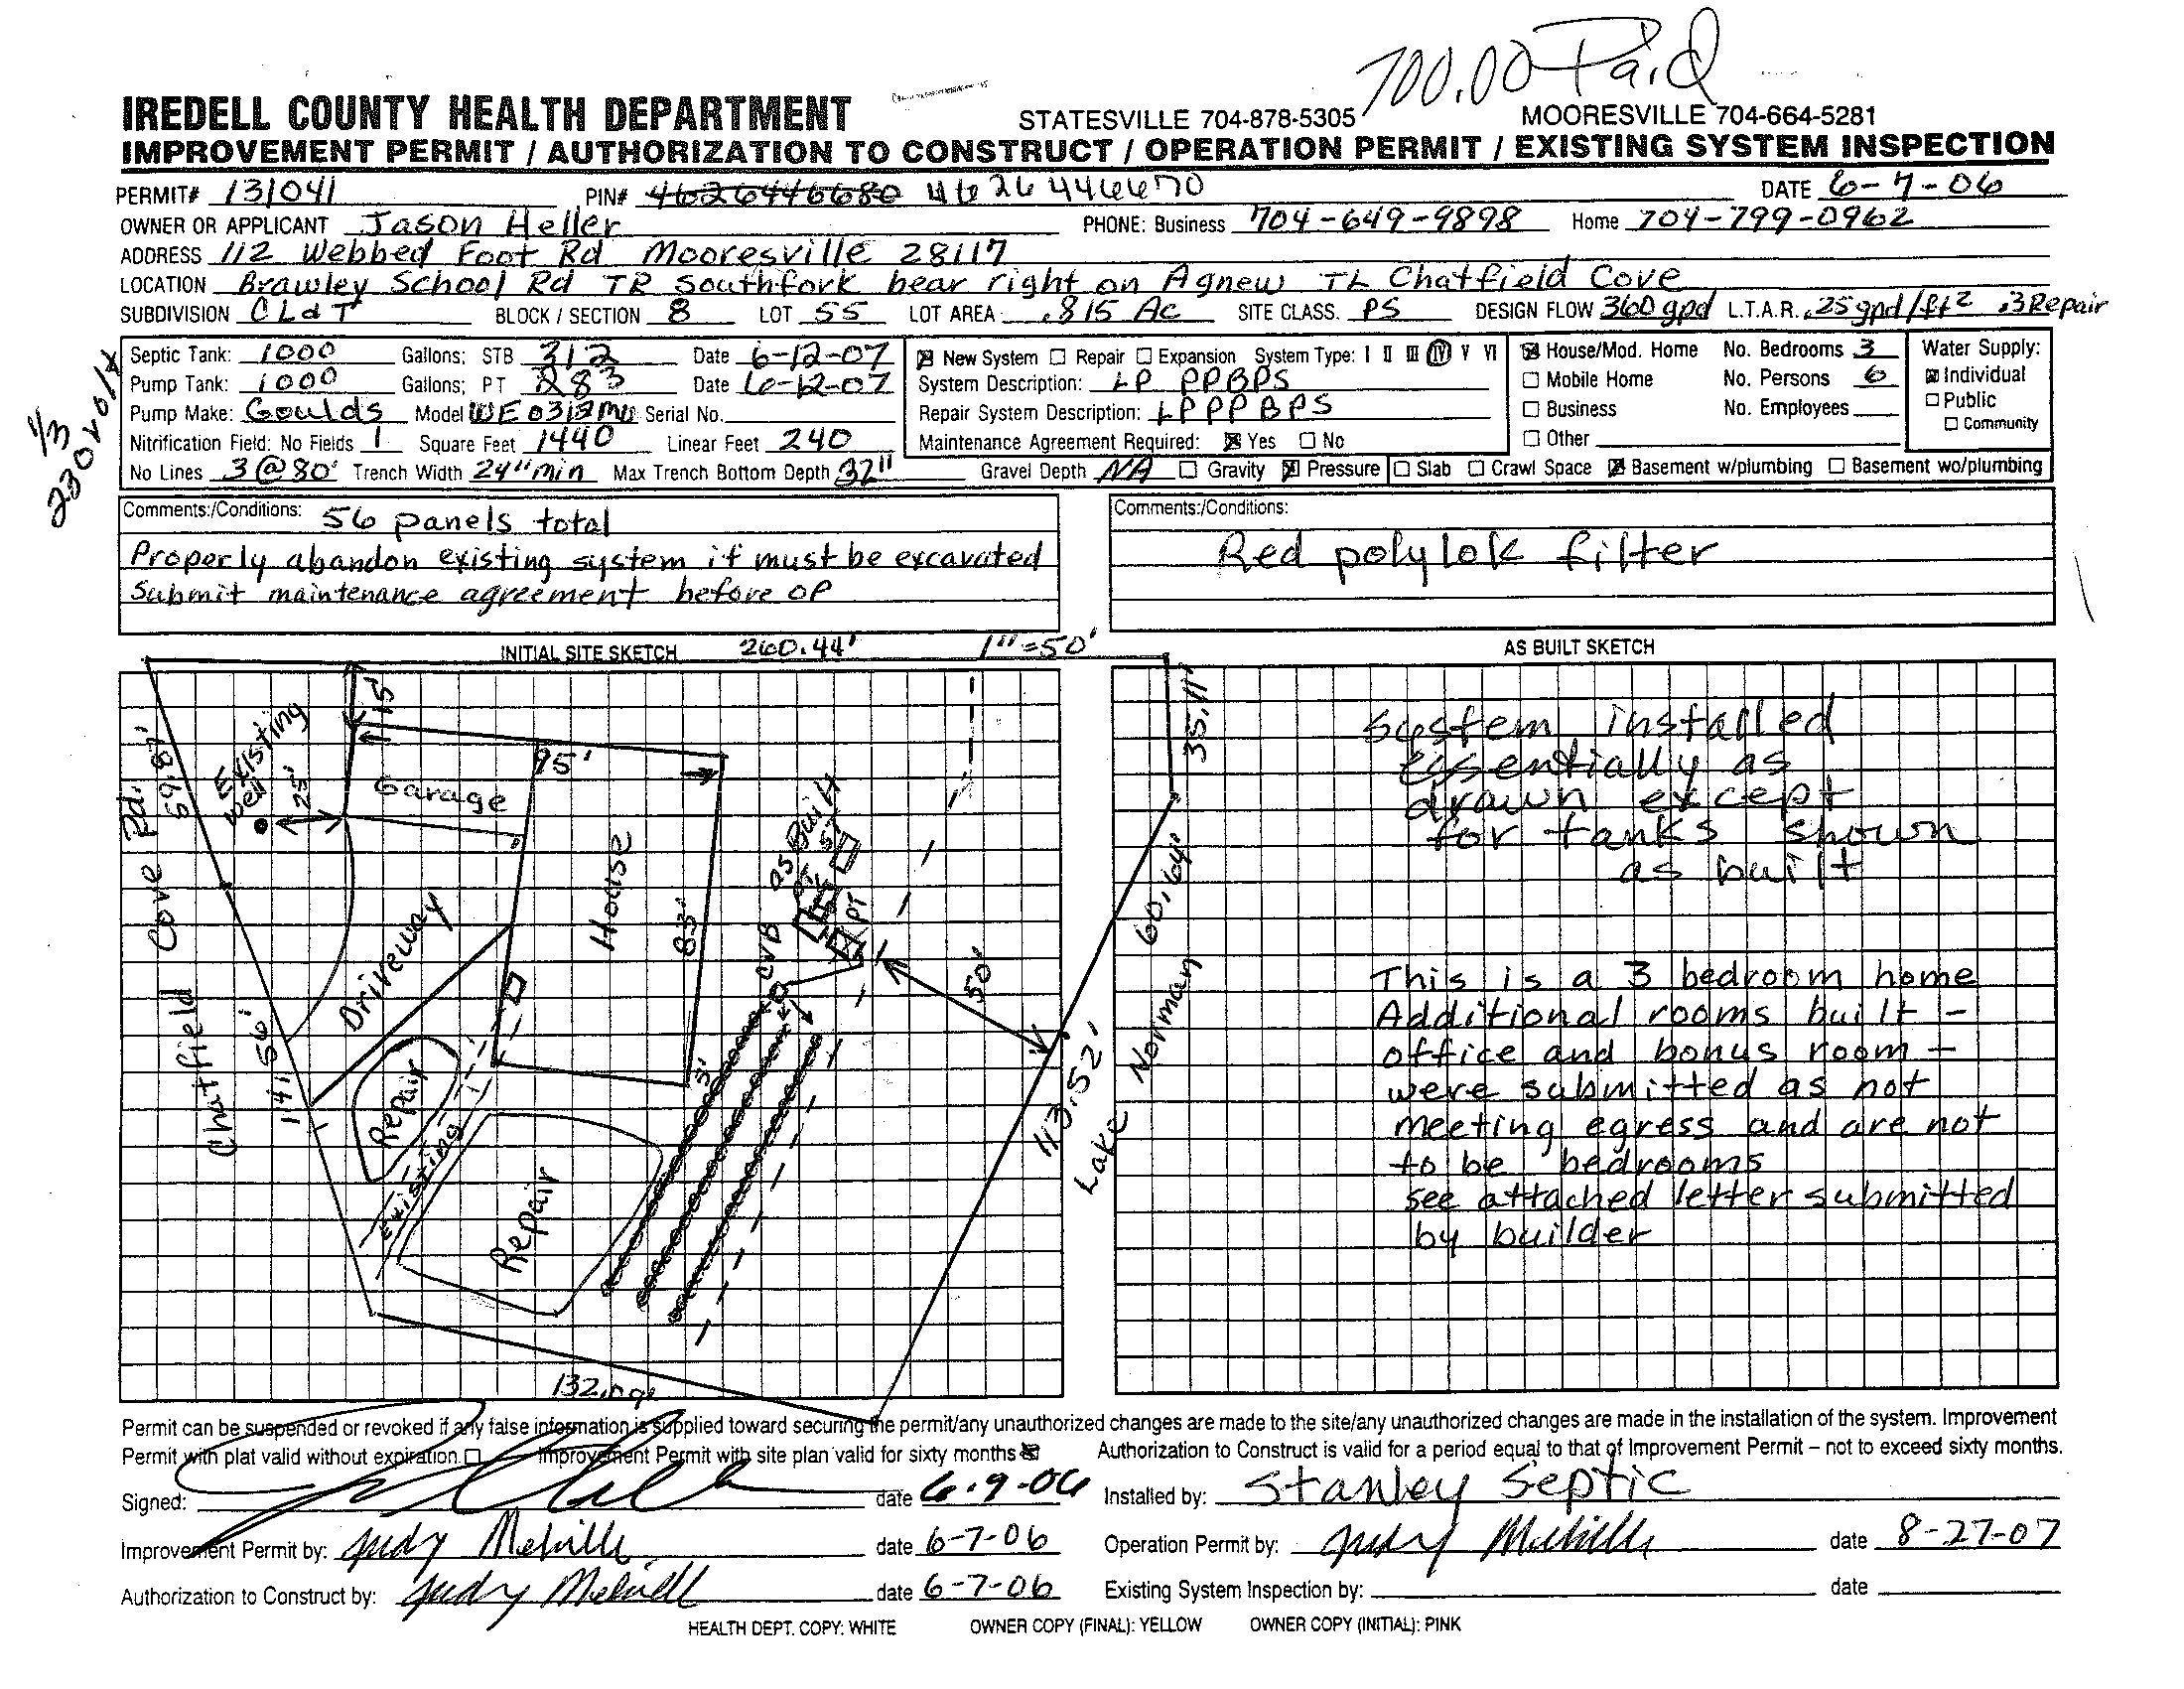 700.00 Paid
IREDELL COUNTY HEALTH DEPARTMENT STATESVILLE 704-878-5305 MOORESVILLE 704-664-5281
IMPROVEMENT PERMIT / AUTHORIZATION TO CONSTRUCT / OPERATION PERMIT / EXISTING SYSTEM INSPECTION
PERMIT# 131041 PIN# 4626446680 4626446670 DATE 6-7-06
OWNER OR APPLICANT Jason Heller PHONE: Business 704-649-9898 Home 704-799-0962
ADDRESS 112 Webbed Foot Rd Mooresville 28117
LOCATION Brawley School Rd TR Southfork bear right on Agnew TL Chatfield Cove
SUBDIVISION CLdT BLOCK / SECTION 8 LOT 55 LOT AREA .815 Ac SITE CLASS. PS DESIGN FLOW 360 gpd L.T.A.R. .25 gpd/ft2 .3 Repair
Septic Tank: 1000 Gallons: STB 312 Date 6-12-07
Pump Tank: 1000 Gallons: PT 283 Date 6-12-07
Pump Make: Goulds Model WE0312MU Serial No.
Nitrification Field: No Fields 1 Square Feet 1440 Linear Feet 240
No Lines 3 @ 80' Trench Width 24" min Max Trench Bottom Depth 32" Gravel Depth NA Gravity Pressure Slab Crawl Space Basement w/plumbing Basement wo/plumbing
1/3
230v
New System Repair Expansion System Type: I II III IV V VI
System Description: LP PPBPS
Repair System Description: LPPPBPS
Maintenance Agreement Required: Yes No
House/Mod. Home No. Bedrooms 3
Mobile Home No. Persons 6
Business No. Employees
Other
Water Supply:
Individual
Public
Community
Comments:/Conditions: 56 panels total
Properly abandon existing system if must be excavated
Submit maintenance agreement before OP
Comments:/Conditions:
Red polylok filter
INITIAL SITE SKETCH 260.44' 1"=50'
AS BUILT SKETCH
15'
95'
Existing
well
25'
Garage
House
83'
Driveway
Chatfield Cove Rd.
59.87'
141.56'
as Built
ST
PT
PT
CVB
50'
5'
Repair
Existing
Repair
35.11'
60.64'
113.52'
Lake Norman
132.09'
System installed
essentially as
drawn except
for tanks shown
as built
This is a 3 bedroom home
Additional rooms built -
office and bonus room -
were submitted as not
meeting egress and are not
to be bedrooms
see attached letter submitted
by builder
Permit can be suspended or revoked if any false information is supplied toward securing the permit/any unauthorized changes are made to the site/any unauthorized changes are made in the installation of the system. Improvement
Permit with plat valid without expiration. Improvement Permit with site plan valid for sixty months Authorization to Construct is valid for a period equal to that of Improvement Permit – not to exceed sixty months.
Signed: date 6-9-06 Installed by: Stanley Septic
Improvement Permit by: Judy Melville date 6-7-06 Operation Permit by: Judy Melville date 8-27-07
Authorization to Construct by: Judy Melville date 6-7-06 Existing System Inspection by: date
HEALTH DEPT. COPY: WHITE OWNER COPY (FINAL): YELLOW OWNER COPY (INITIAL): PINK